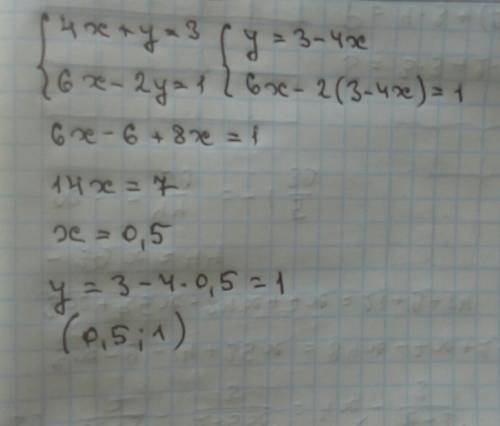 {4x + y = 3 {y = 3 - 4x
6x - 2y = 1 6x - 2(3 - 4x) = 1
6x - 6 + 8x = 1
14x = 7
x = 0,5
y = 3 - 4 · 0,5 = 1
(0,5 ; 1)